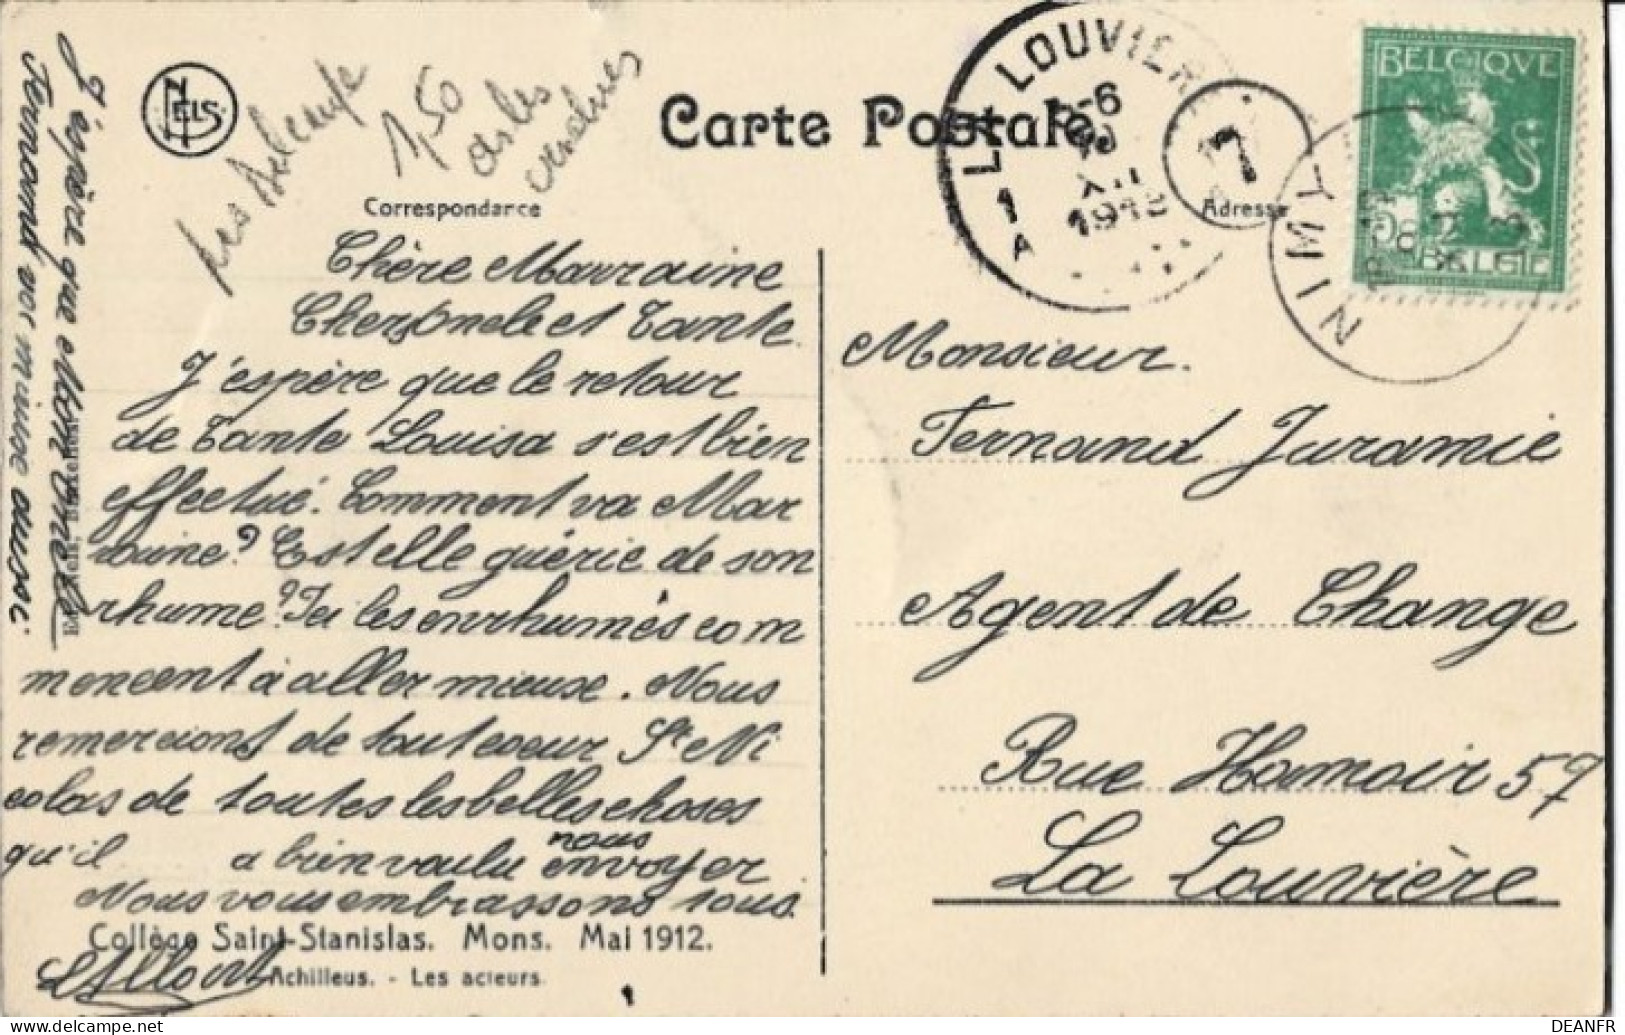 NELS
Carte Postale
Correspondance
Adresse
LA LOUVIERE
6
XII
1912
1
A
7
NIMY
BELGIQUE
5
BELGIE
1,50
Chère Marraine
Cher Oncle et Tante
J'espère que le retour
de Tante Louisa s'est bien
effectué. Comment va Mar
raine? Est elle guérie de son
rhume? Ici les enrhumés com
mencent à aller mieux. Nous
remercions de tout coeur St Ni
colas de toutes les belles choses
qu'il a bien voulu nous envoyer
Nous vous embrassons tous.
J'espère que
Fernand vont mieux aussi.
Monsieur.
Fernand Juramie
Agent de Change
Rue Hamoir 57
La Louvière
Collège Saint-Stanislas. Mons. Mai 1912.
Achilleus. - Les acteurs.
DEANFR